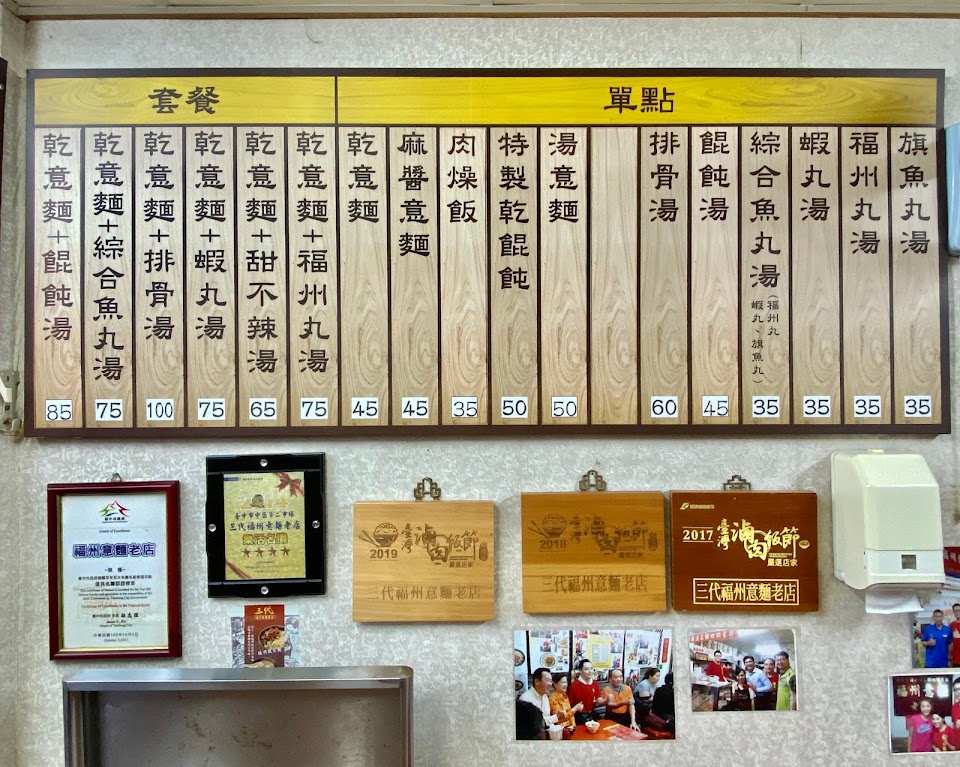 套餐
單點
乾意麵+餛飩湯 85
乾意麵+綜合魚丸湯 75
乾意麵+排骨湯 100
乾意麵+蝦丸湯 75
乾意麵+甜不辣湯 65
乾意麵+福州丸湯 75
乾意麵 45
麻醬意麵 45
肉燥飯 35
特製乾餛飩 50
湯意麵 50
排骨湯 60
餛飩湯 45
綜合魚丸湯(福州丸蝦丸、旗魚丸) 35
蝦丸湯 35
福州丸湯 35
旗魚丸湯 35
福州意麵老店
臺中市中區第二市場
三代福州意麵老店
樂活名攤
★★★★
三代
2019
臺灣滷肉飯節
嚴選店家
三代福州意麵老店
2018
臺灣滷肉飯節
嚴選店家
三代福州意麵老店
2017
臺灣滷肉飯節
嚴選店家
三代福州意麵老店
福州意麵